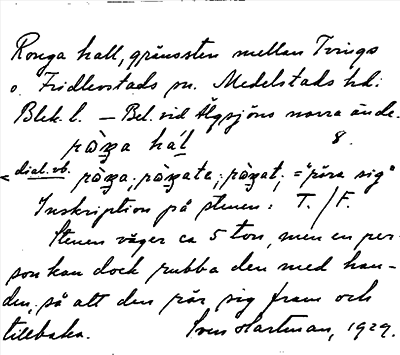 Ronga hall, gränssten mellan Tvings
o. Fridlevstads sn. Medelstads hd:
Blek. l. — Bel. vid Älgsjöns norra ände.
hál 8.
< dial. vb. = "röra sig"
Inskription på stenen: T./F.
Stenen väger ca 5 ton, men en per-
son kan dock rubba den med han-
den, så att den rör sig fram och
tillbaka. Sven Hartman, 1929.